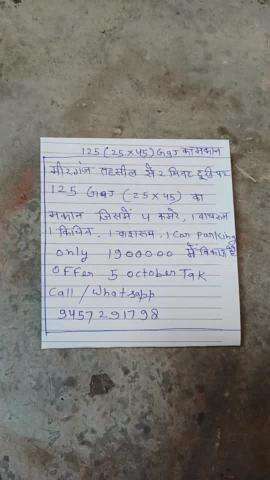 125 (25×45) Gaj का मकान
मीरगंज तहसील से 2 मिनट दूरी पर
125 Gaj (25×45) का
मकान जिसमें 4 कमरे, 1 बाथरूम
1 किचिन, 1 वाशरूम, 1 Car Parking
only 1900000 में बिकाऊ है
Offer 5 october Tak
Call / Whatsapp
9457291798